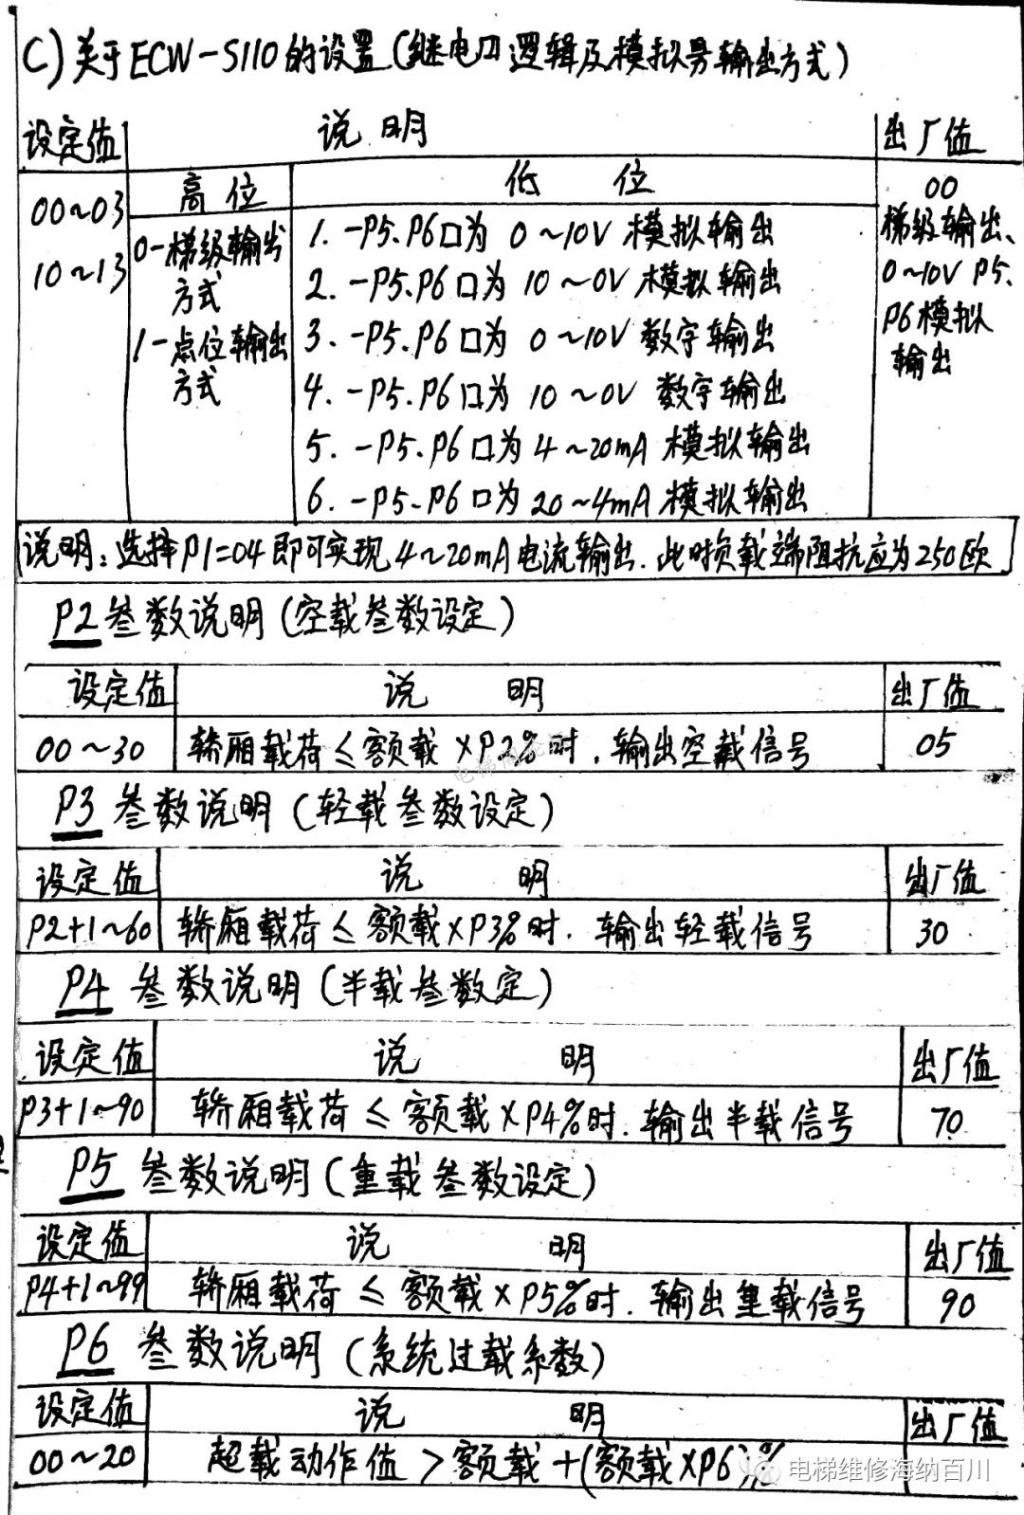 C)关于ECW-S110的设置(继电口逻辑及模拟号输出方式)
设定值 说明 出厂值
00~03 高位 低位 00
10~13 0-梯级输出方式 1.-P5.P6口为 0~10V 模拟输出 梯级输出、
2.-P5.P6口为 10~0V 模拟输出 0~10V P5.
1-点位输出方式 3.-P5.P6口为 0~10V 数字输出 P6模拟
4.-P5.P6口为 10~0V 数字输出 输出
5.-P5.P6口为 4~20mA 模拟输出
6.-P5.P6口为 20~4mA 模拟输出
说明:选择P1=04即可实现4~20mA电流输出.此时负载端阻抗应为250欧
P2叁数说明(空载叁数设定)
设定值 说 明 出厂值
00~30 轿厢载荷≤额载×P2%时.输出空载信号 05
P3 叁数说明(轻载叁数设定)
设定值 说 明 出厂值
P2+1~60 轿厢载荷≤额载×P3%时.输出轻载信号 30
P4 叁数说明(半载叁数定)
设定值 说 明 出厂值
P3+1~90 轿厢载荷≤额载×P4%时.输出半载信号 70
P5 叁数说明(重载叁数设定)
设定值 说 明 出厂值
P4+1~99 轿厢载荷≤额载×P5%时.输出重载信号 90
P6 叁数说明(系统过载系数)
设定值 说 明 出厂值
00~20 超载动作值>额载+(额载×P6)%
电梯维修海纳百川